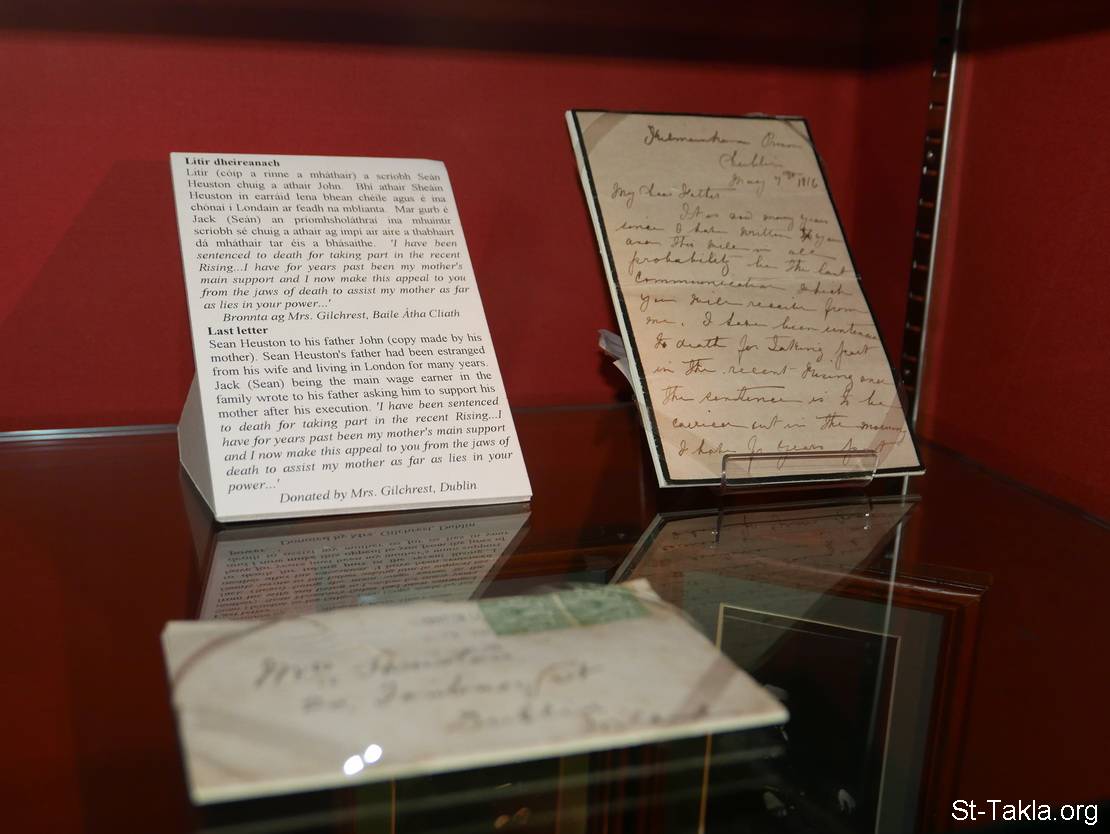 Litir dheireanach
Litir (cóip a rinne a mháthair) a scríobh Seán
Heuston chuig a athair John. Bhí athair Sheáin
Heuston in earráid lena bhean chéile agus é ina
chónaí i Londain ar feadh na mblianta. Mar gurb é
Jack (Seán) an príomhsholáthraí ina mhuintir
scríobh sé chuig a athair ag impí air aire a thabhairt
dá mháthair tar éis a bhásaithe. 'I have been
sentenced to death for taking part in the recent
Rising...I have for years past been my mother's
main support and I now make this appeal to you
from the jaws of death to assist my mother as far
as lies in your power...'
Bronnta ag Mrs. Gilchrest, Baile Átha Cliath
Last letter
Sean Heuston to his father John (copy made by his
mother). Sean Heuston's father had been estranged
from his wife and living in London for many years.
Jack (Sean) being the main wage earner in the
family wrote to his father asking him to support his
mother after his execution. 'I have been sentenced
to death for taking part in the recent Rising...I
have for years past been my mother's main support
and I now make this appeal to you from the jaws of
death to assist my mother as far as lies in your
power...'
Donated by Mrs. Gilchrest, Dublin
Kilmainham Prison
Dublin
May 7th 1916
My Dear Father
It is now many years
since I have written to you
and this will in all
probability be the last
communication which
you will receive from
me. I have been sentenced
to death for taking part
in the recent Rising and
the sentence is to be
carried out in the morning
I have for years past
Dublin
St-Takla.org